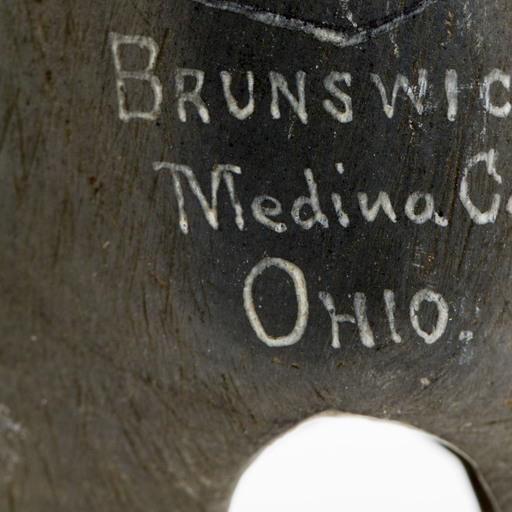 BRUNSWIC
Medina. Co
OHIO.